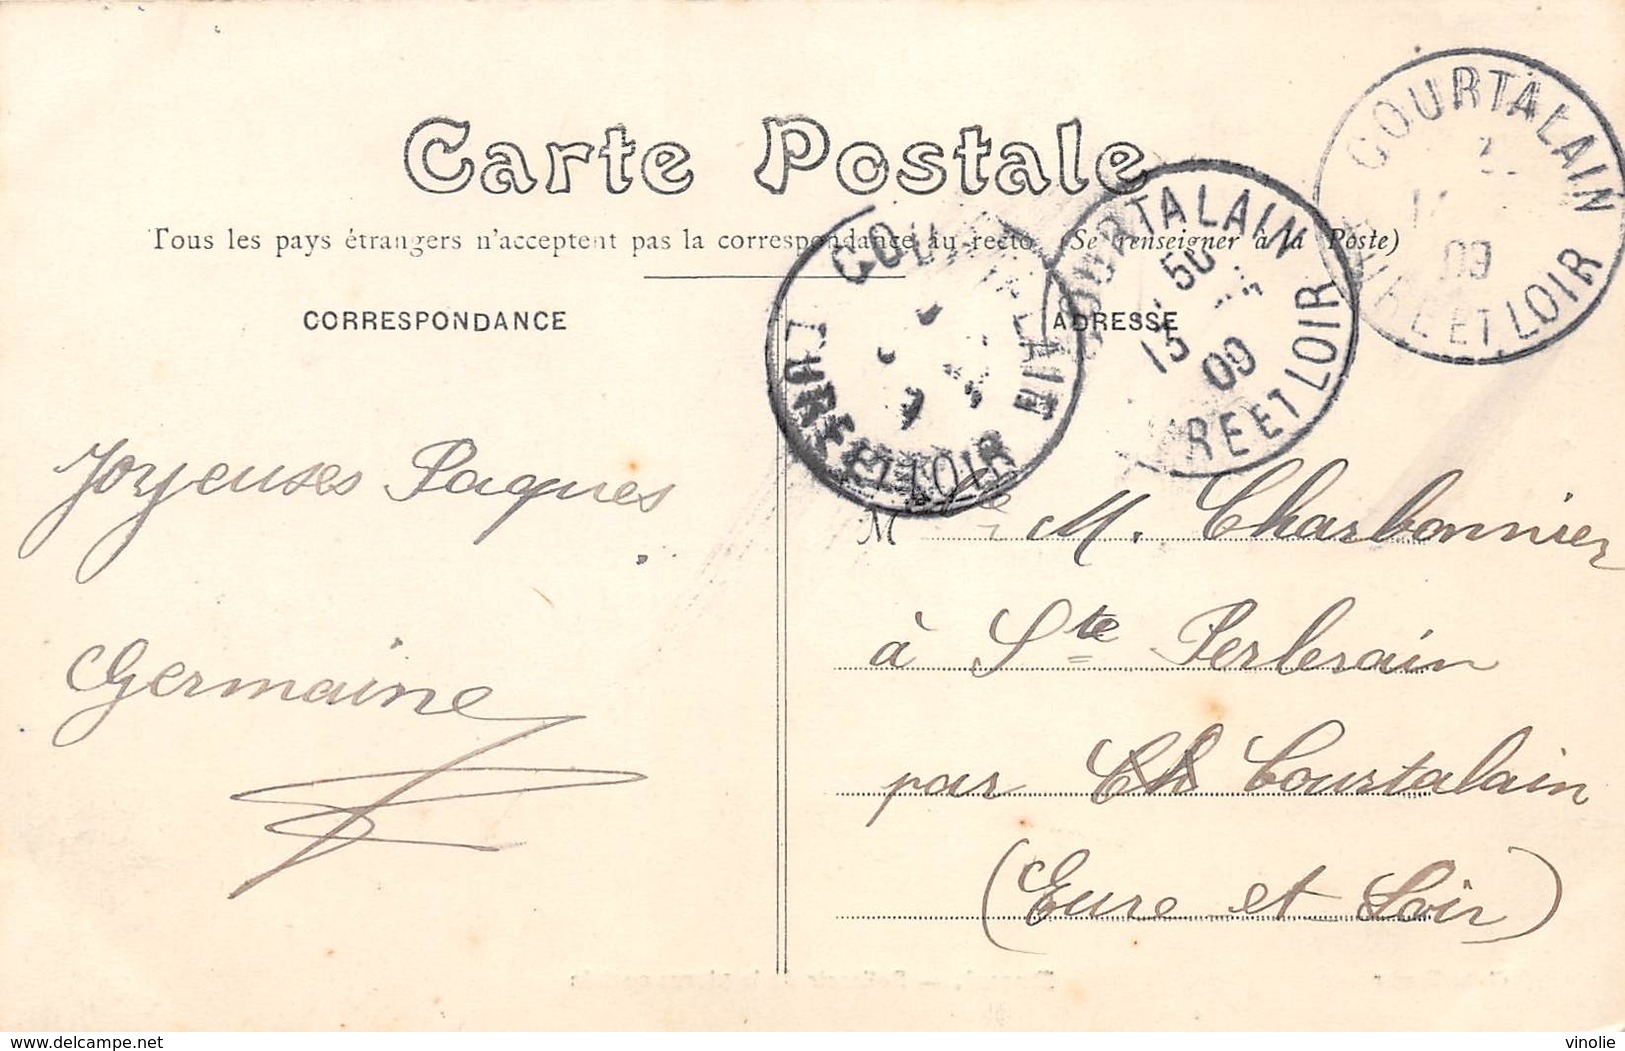 Carte Postale
Tous les pays étrangers n'acceptent pas la correspondance au recto (Se renseigner à la Poste)
CORRESPONDANCE
ADRESSE
COURTALAIN
EURE ET LOIR
COURTALAIN
13 50
09
EURE ET LOIR
COURTALAIN
09
EURE ET LOIR
Joyeuses Paques
Germaine
Mlle M. Charbonnier
à Ste Perlerain
par Ch Courtalain
(Eure et Loir)
www.delcampe.net
vinolie